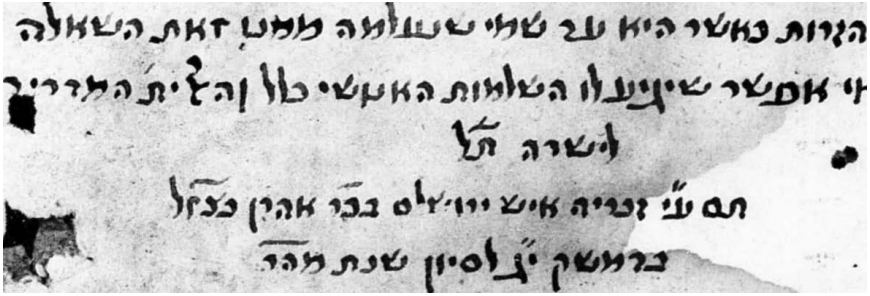 הגרות כאשר היא על שמי שנעלמה ממנו זאת השאלה
אי אפשר שיגיע לו השלמות האנושי כלל והצ׳ית׳ המדריך
לישרה ת״ל
תם ע״י זכריה איש ירושלם בכ״ר אהרן
בדמשק י״ג לסיון שנת